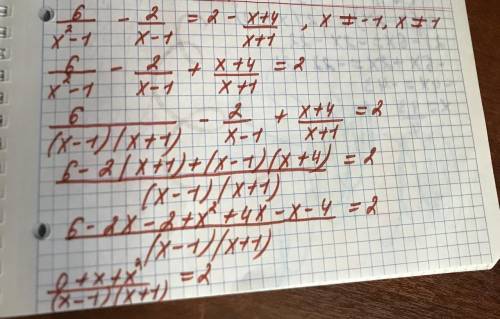 6/(x²-1) - 2/(x-1) = 2 - (x+4)/(x+1), x ≠ -1, x ≠ 1
6/(x²-1) - 2/(x-1) + (x+4)/(x+1) = 2
6/((x-1)(x+1)) - 2/(x-1) + (x+4)/(x+1) = 2
(6-2(x+1)+(x-1)(x+4))/((x-1)(x+1)) = 2
(6-2x-2+x²+4x-x-4)/((x-1)(x+1)) = 2
(0+x+x²)/((x-1)(x+1)) = 2